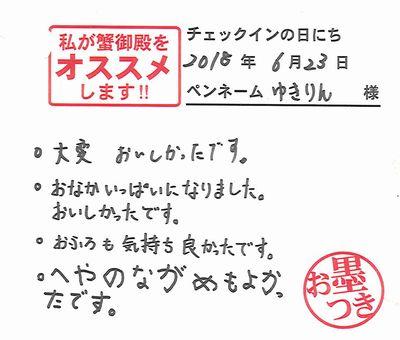 私が蟹御殿を
オススメ
します!!
チェックインの日にち
2018年 6月23日
ペンネーム ゆきりん 様
。大変 おいしかったです。
。おなかいっぱいになりました。
おいしかったです。
。おふろも気持ち良かったです。
。へやのながめもよかっ
たです。
お墨つき